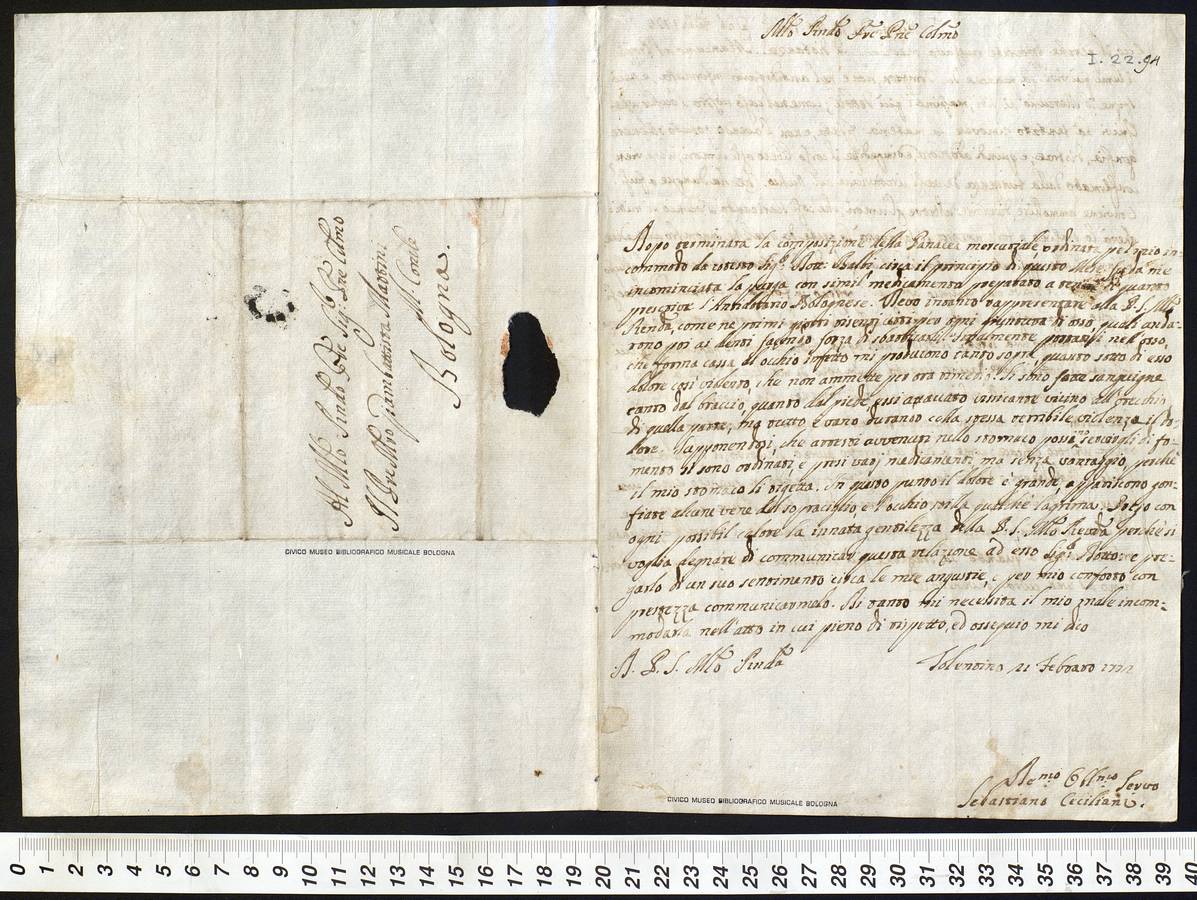 Al Mlto Rndo Pre Sig. Pre Colmo
Il Pre Mro Giambattista Martini
M. Conle
Bologna.
CIVICO MUSEO BIBLIOGRAFICO MUSICALE BOLOGNA
Mlto Rndo Pre Pne Colmo
I. 22. 94
Dopo terminata la composizione della Panacea mercuriale ordinata pel mio in-
commodo da cotesto Sigr. Dott. Balbi, circa il principio di questo Mese fu da me
incominciata la purga con simil medicamento preparato a quanto
prescrive l'Antidotario Bolognese. Devo intanto rappresentare alla P. S. Mlto
Renda, come ne primi giorni osservai ogni d'osso, quali anda-
rono poi ai denti facendo forza di finalmente portatisi nell'osso,
che forma cassa al occhio infetto mi producono tanto sopra, quanto sotto di esso
dolore così violento, che non ammette per ora rimedi. Si sono fatte sanguigne
tanto dal braccio, quanto dal piede, essi attaccato vissicante vicino all'orecchio
di quella parte, ma tutto è vano durando colla stessa terribile violenza il do-
lore. Supponendosi, che arresti avvenuti nello stomaco possano servirgli di fo-
mento si sono ordinati, e presi varj medicamenti ma senza vantaggio, perchè
il mio stomaco li rigetta. In questo punto il dolore è grande, appariscono gon-
fiate alcune vene del sopraciglio, e l'occhio stilla qualche lagrima. Prego con
ogni possibil calore la innata gentilezza della P. S. Mlto Revda perchè si
voglia degnare di communicar questa relazione ad esso Sigr. Dottore e pre-
garlo di un suo sentimento circa le mie angustie, e per mio conforto con
prestezza communicarmelo. A tanto mi necessita il mio male incom-
modarla nell'atto in cui pieno di rispetto, ed ossequio mi dico
D. P. S. Mlto Rnda
Tolentino 21 Febbraro
Sebastiano Ceciliani.
CIVICO MUSEO BIBLIOGRAFICO MUSICALE BOLOGNA
0 1 2 3 4 5 6 7 8 9 10 11 12 13 14 15 16 17 18 19 20 21 22 23 24 25 26 27 28 29 30 31 32 33 34 35 36 37 38 39 40